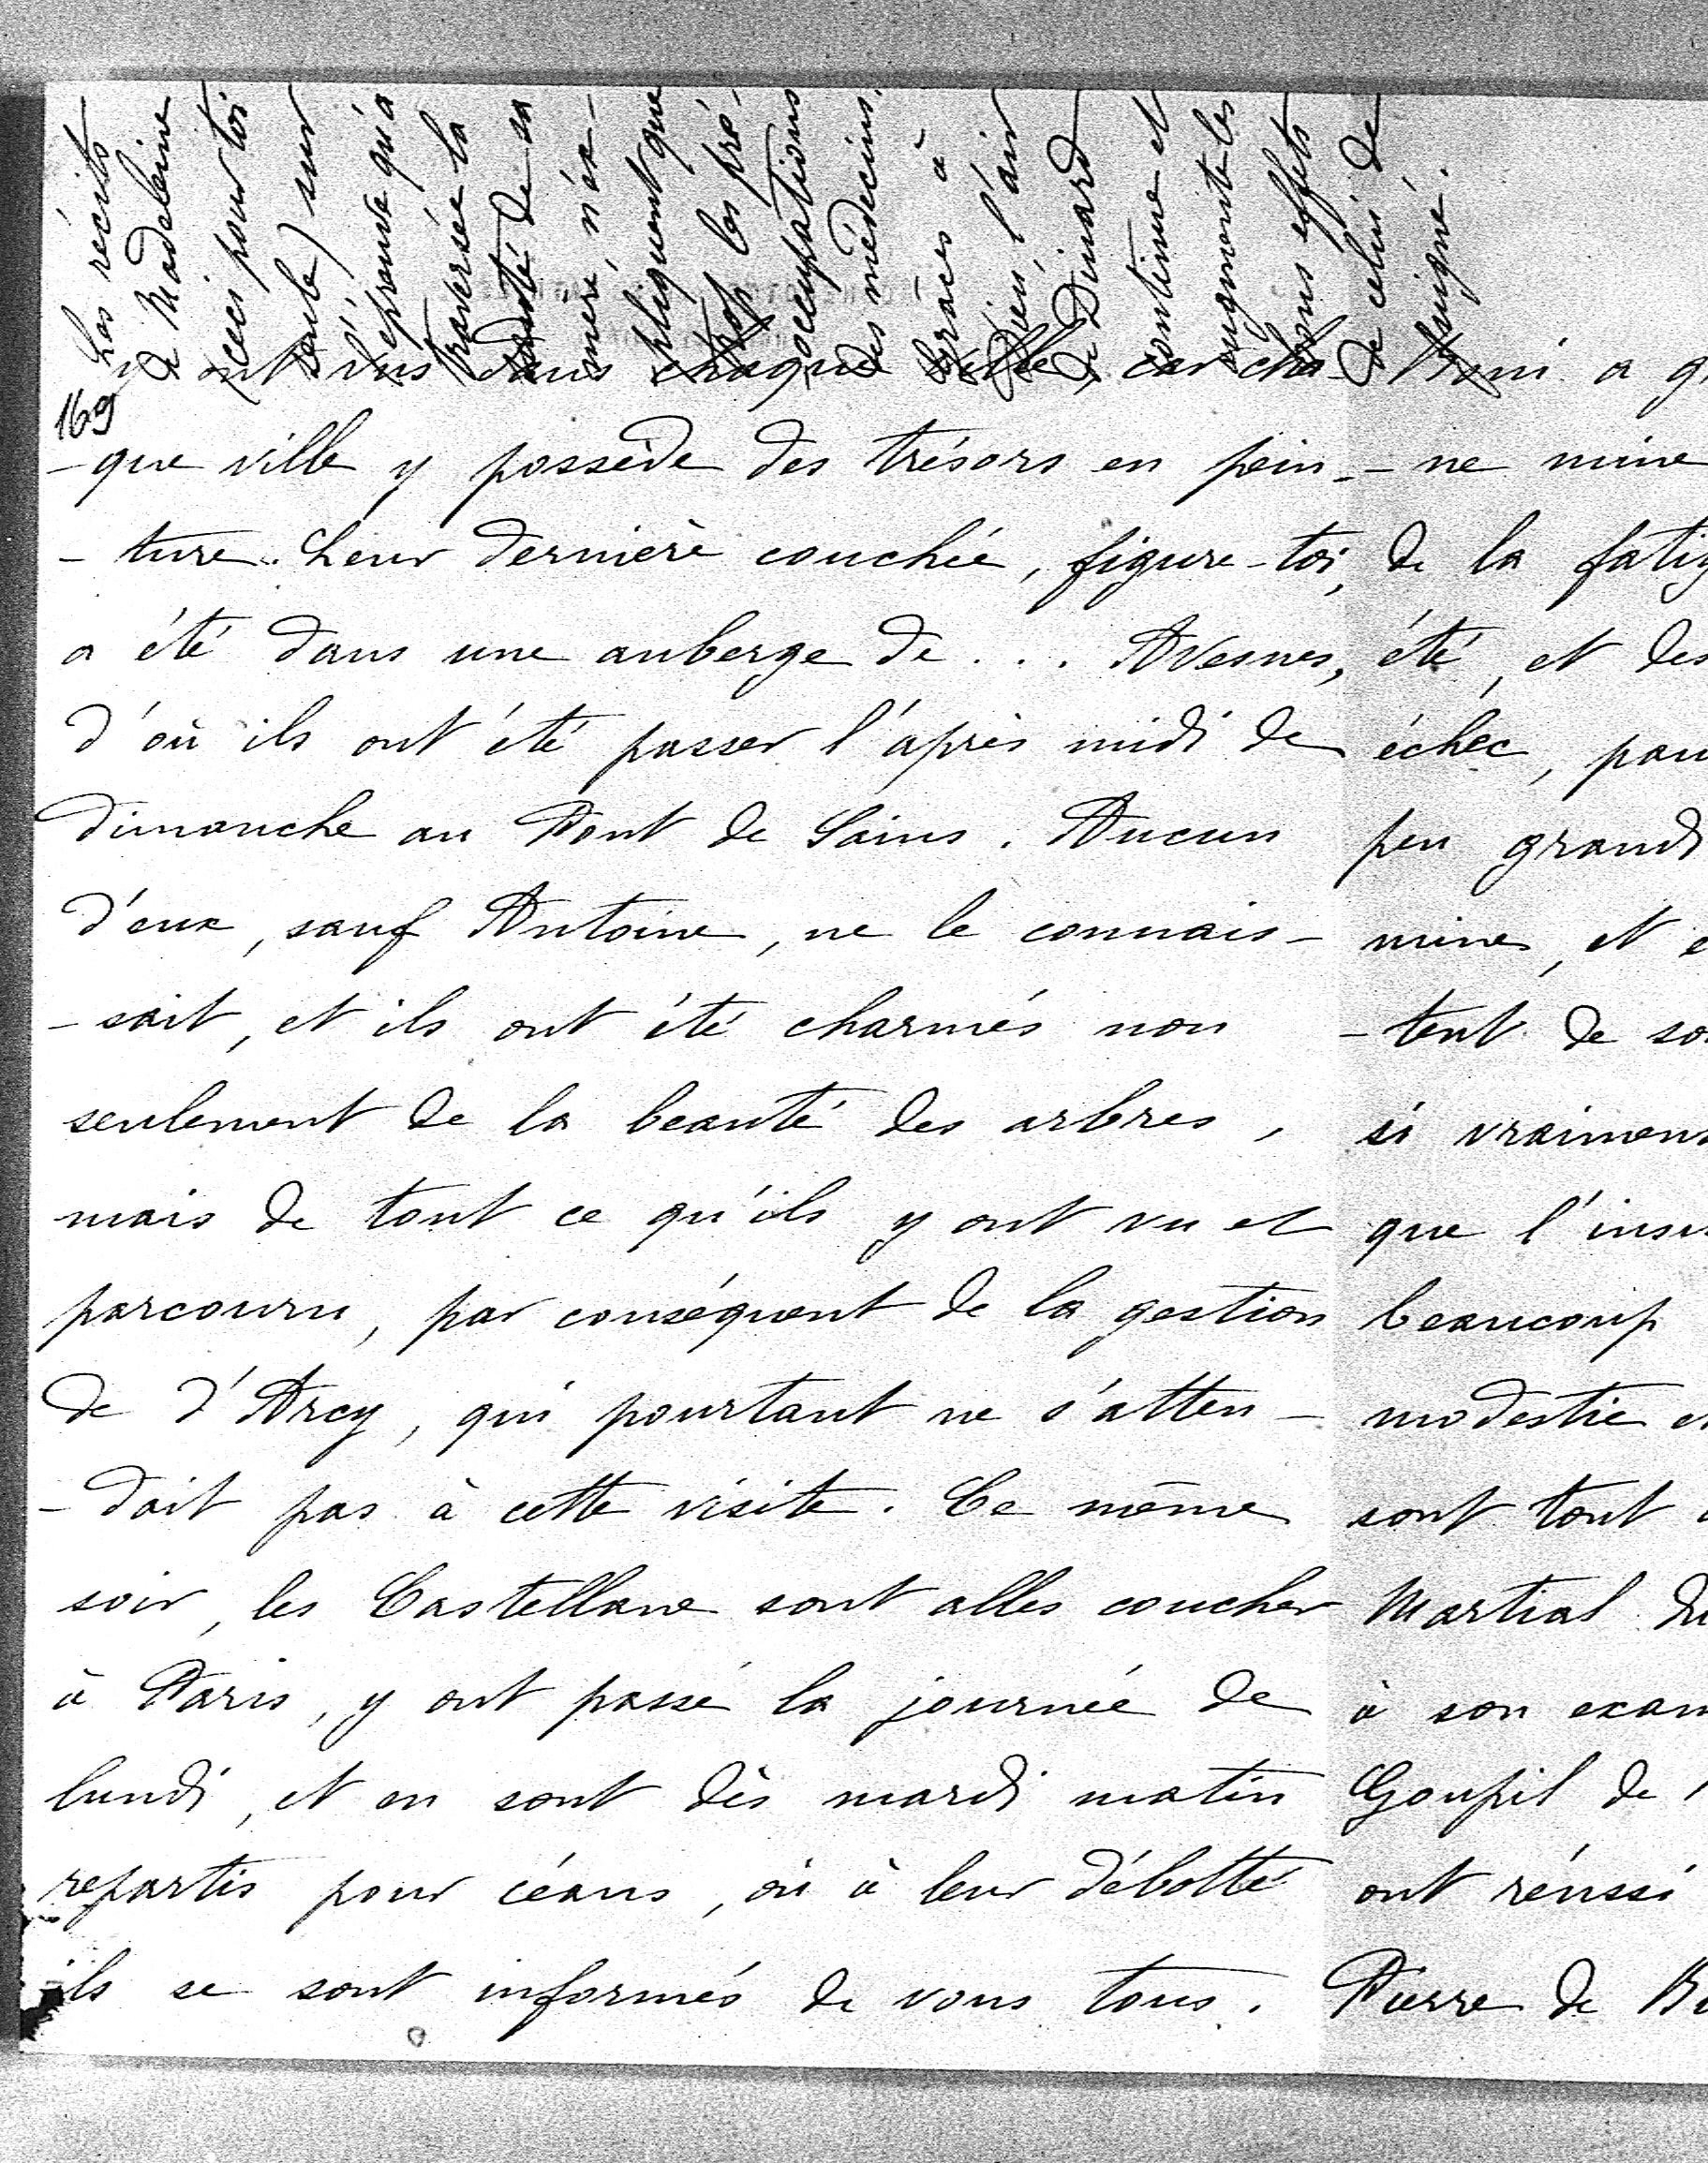 Les récits
de Madeleine
(ceci pour toi
seule) sur
l'épreuve qu'a
traversée la
santé de sa
mère, n'ex-
pliquent que
trop les pré-
occupations
des médecins.
Grâces à
Dieu, l'air
de Dinard
continue et
augmente les
bons effets
de celui de
169
y ont vus dans chaque ville, car cha-
-que ville y possède des trésors en pein-
-ture. Leur dernière couchée, figure-toi,
a été dans une auberge de ... Avesnes,
d'où ils ont été passer l'après midi de
dimanche au Pont de Sains. Aucun
d'eux, sauf Antoine, ne le connais-
-sait, et ils ont été charmés non
seulement de la beauté des arbres,
mais de tout ce qu'ils y ont vu et
parcouru, par conséquent de la gestion
de d'Arcy, qui pourtant ne s'atten-
-dait pas à cette visite. Ce même
soir, les Castellane sont allés coucher
à Paris, y ont passé la journée de
lundi, et en sont dès mardi matin
repartis pour céans, où à leur débotté
ils se sont informés de vous tous.
Boni a
-ne mine
de la
été, et des
échec,
peu grandi
mine, et
-tent de
si vraiment
que
beaucoup
modestie
sont tout
Martial
à son
Goupil de
ont réussi
Pierre de